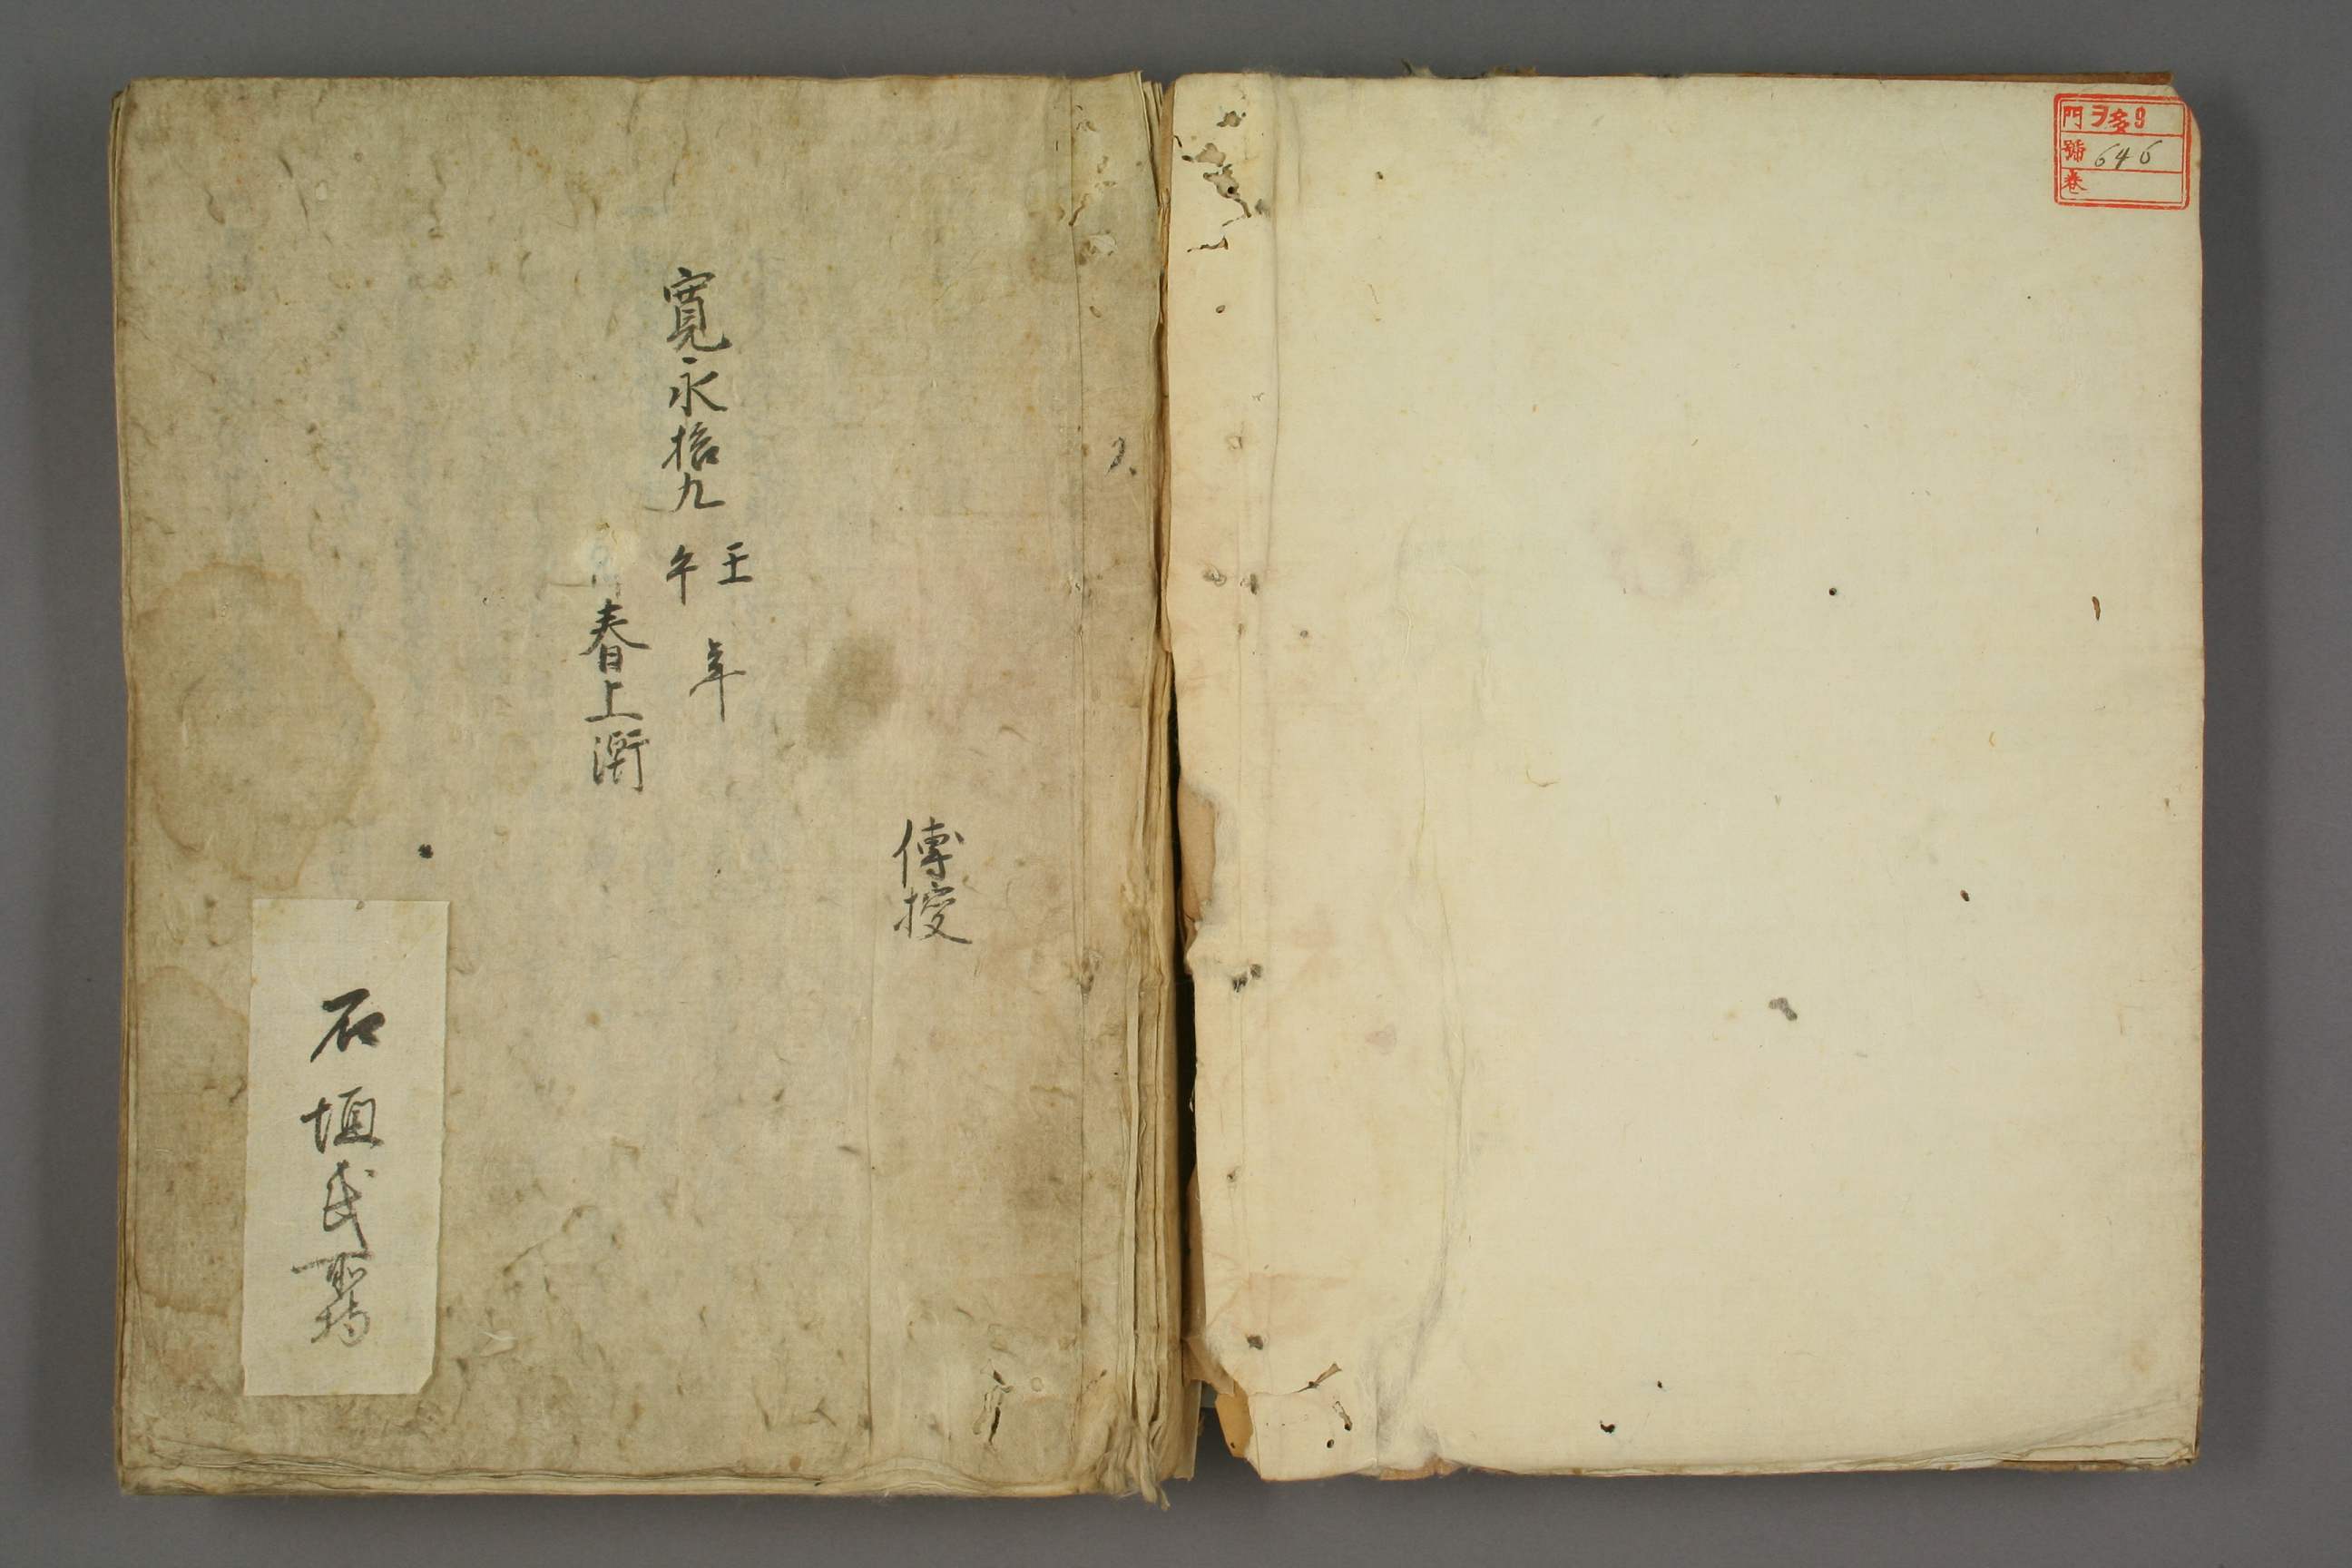 門 ヲ多9
號 646
卷
傳授
寛永拾九壬午年
春上澣
石垣氏所持